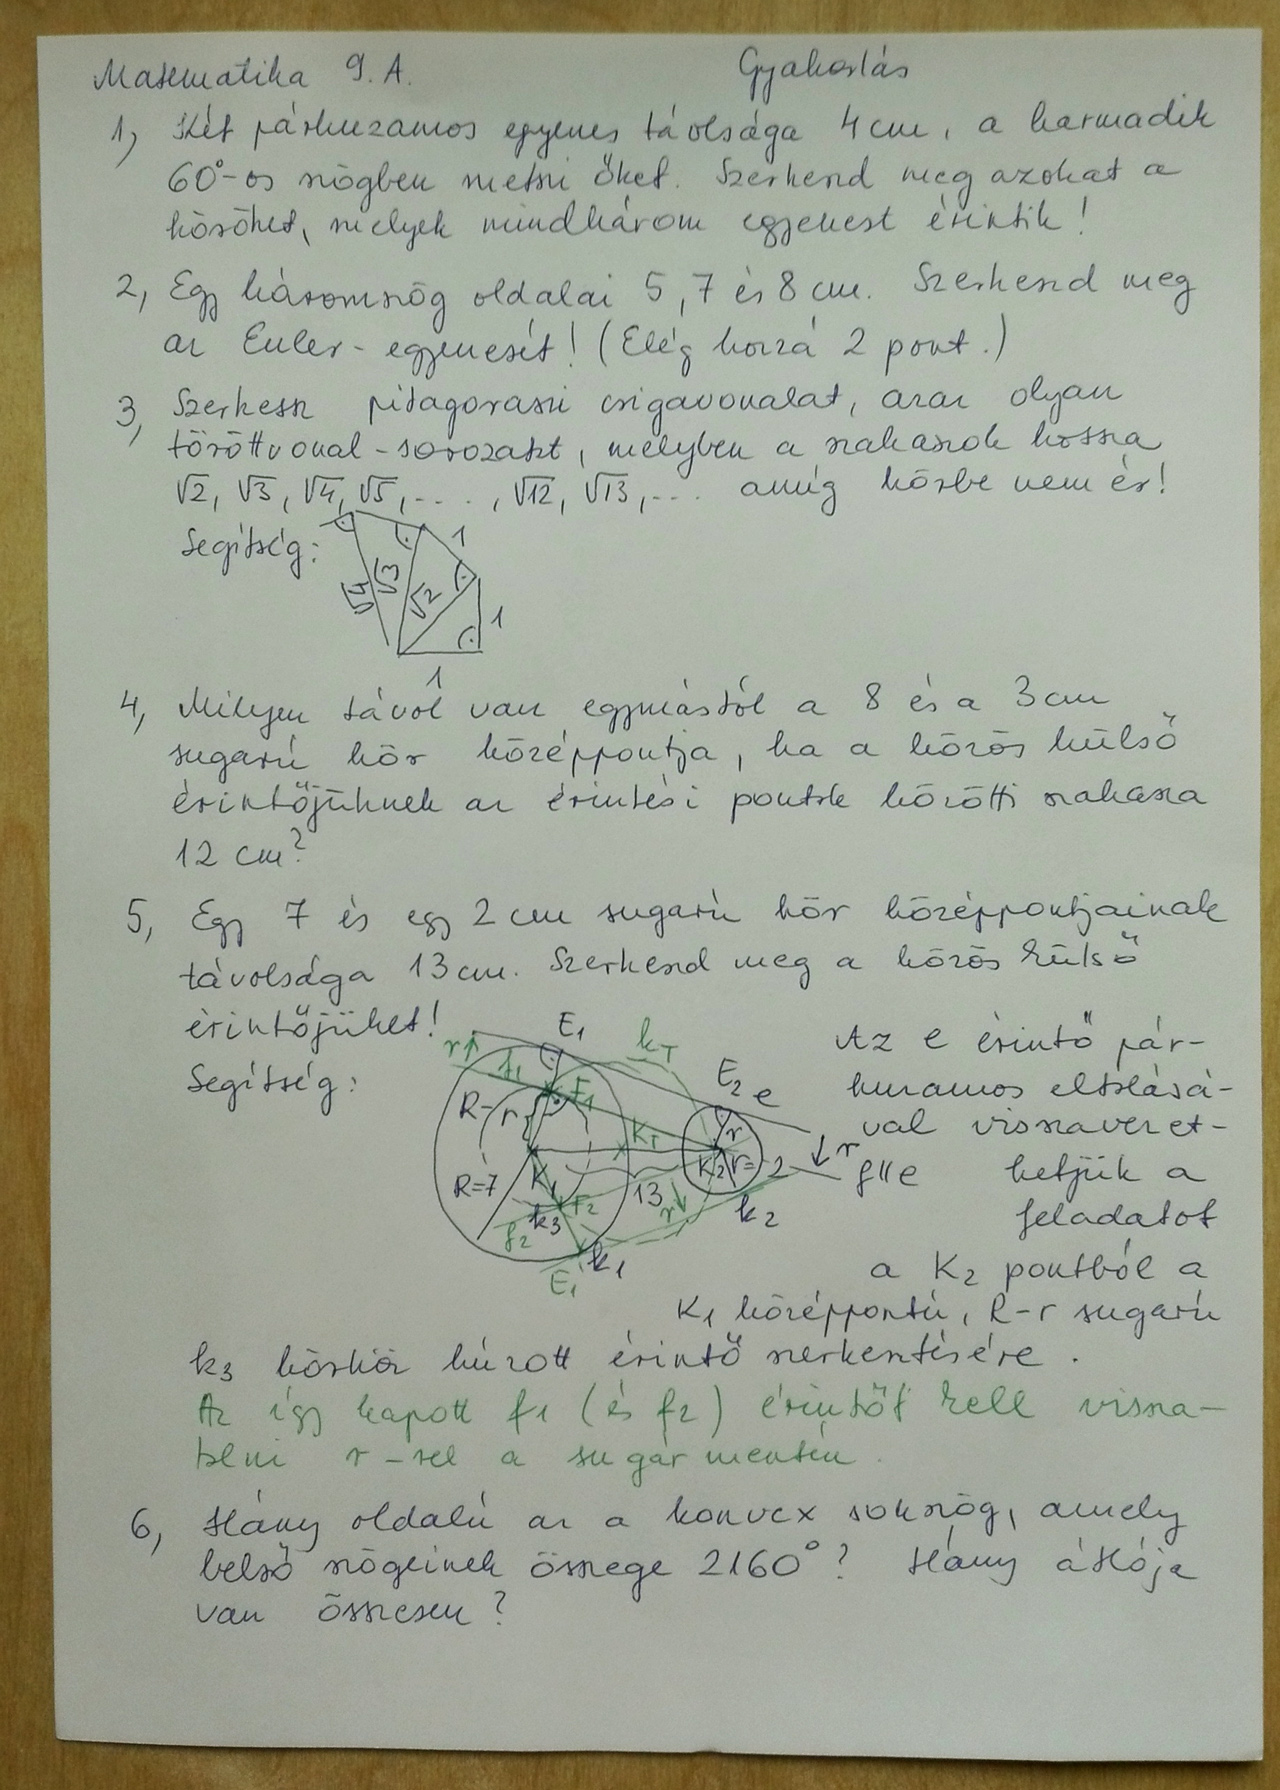 Matematika 9.A. Gyakorlás
1, Két párhuzamos egyenes távolsága 4 cm, a harmadik
60°-os szögben metszi őket. Szerkeszd meg azokat a
köröket, melyek mindhárom egyenest érintik!
2, Egy háromszög oldalai 5, 7 és 8 cm. Szerkeszd meg
az Euler-egyenesét! (Elég hozzá 2 pont.)
3, Szerkessz pitagoraszi csigavonalat, azaz olyan
töröttvonal-sorozatot, melyben a szakaszok hossza
√2, √3, √4, √5, ..., √12, √13, ... amíg körbe nem ér!
Segítség:
1
√4 √3 √2 1
1
4, Milyen távol van egymástól a 8 és a 3 cm
sugarú kör középpontja, ha a közös külső
érintőjüknek az érintési pontok közötti szakasza
12 cm?
5, Egy 7 és egy 2 cm sugarú kör középpontjainak
távolsága 13 cm. Szerkeszd meg a közös külső
érintőjüket!
Segítség:
r f1 E1 kT
F1 E2 e
R-r r
KT r
R=7 K1 K2 r=2 r
13 r
k3 F2 k2
f2 k1
E1
Az e érintő pár-
huzamos eltolásá-
val visszavezet-
f||e hetjük a
feladatot
a K2 pontból a
K1 középpontú, R-r sugarú
k3 körhöz húzott érintő szerkesztésére.
Az így kapott f1 (és f2) érintőt kell vissza-
tolni r-rel a sugár mentén.
6, Hány oldalú az a konvex sokszög, amely
belső szögeinek összege 2160°? Hány átlója
van összesen?